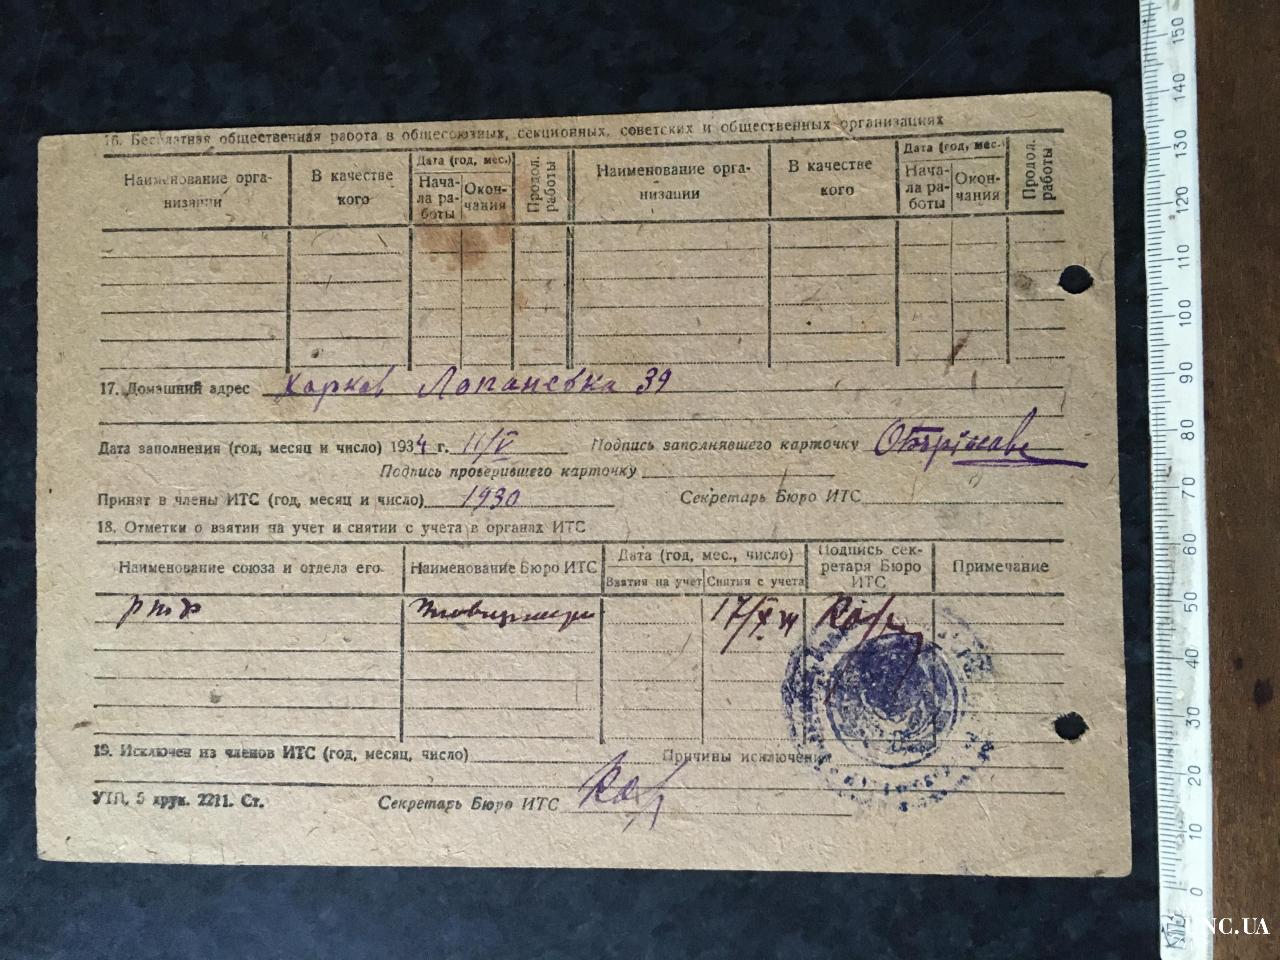 16. Бесплатная общественная работа в общесоюзных, секционных, советских и общественных организациях
Наименование орга-
низации
В качестве
кого
Дата (год, мес.)
Нача-
ла ра-
боты
Окон-
чания
Продол.
работы
Наименование орга-
низации
В качестве
кого
Дата (год, мес.)
Нача-
ла ра-
боты
Окон-
чания
Продол.
работы
17. Домашний адрес Харков Лопаневка 39
Дата заполнения (год, месяц и число) 1934 г. 11/V Подпись заполнявшего карточку
Подпись проверившего карточку
Принят в члены ИТС (год, месяц и число) 1930 Секретарь Бюро ИТС
18. Отметки о взятии на учет и снятии с учета в органах ИТС
Наименование союза и отдела его
Наименование Бюро ИТС
Дата (год, мес., число)
Взятия на учет
Снятия с учета
Подпись сек-
ретаря Бюро
ИТС
Примечание
17/X
19. Исключен из членов ИТС (год, месяц, число) Причины исключения
УТП, 5 друк. 2211. Ст. Секретарь Бюро ИТС
150
140
130
120
110
100
90
80
70
60
50
40
30
20
10
0
NC.UA